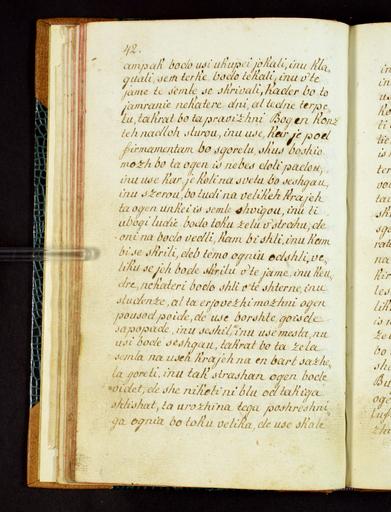 42.
ampak bodo usi ukupei jokali, inu kla,
quali, sem terke bodo tekali, inu v'te
jame te semle se skrivali, kader bo to
jamranie nekatere dni, al tedne terpe,
lu, takrat bo ta pravizhni Bog en konz
teh nadloh sturou, inu use, kar je pod
firmamentam bo sgorelu, skus boshio
mozh bo ta ogen is nebes doli padlou,
inu use kar je koli na svetu bo seshgau,
inu szerou, bo tudi na velikeh krajeh
ta ogen unkei is semle shvignu, inu ti
ubogi ludie bodo toku zelu v'strahu, de
oni na bodo vedli, kam bi shli, inu kam
bi se skrili, deb temo ogniu odshli, ve,
liku se jeh bode skrilu v'te jame, inu kev,
dre, nekateri bodo shli v'te shterne, inu
studenze, al ta erpovezhi mozhni ogen
pousod poide, de use borshte, goisde
sapopade, inu seshil, inu use mesta, nu
usi bode seshgau, takrat bo ta zela
semla na useh krajeh na en bart sazhe,
la goreti, inu tak strashan ogen bode
videt, de she nikoli ni blu od takiga
shlishat, ta urozhina tega poshreshni,
ga ognia bo toku velika, de use skale